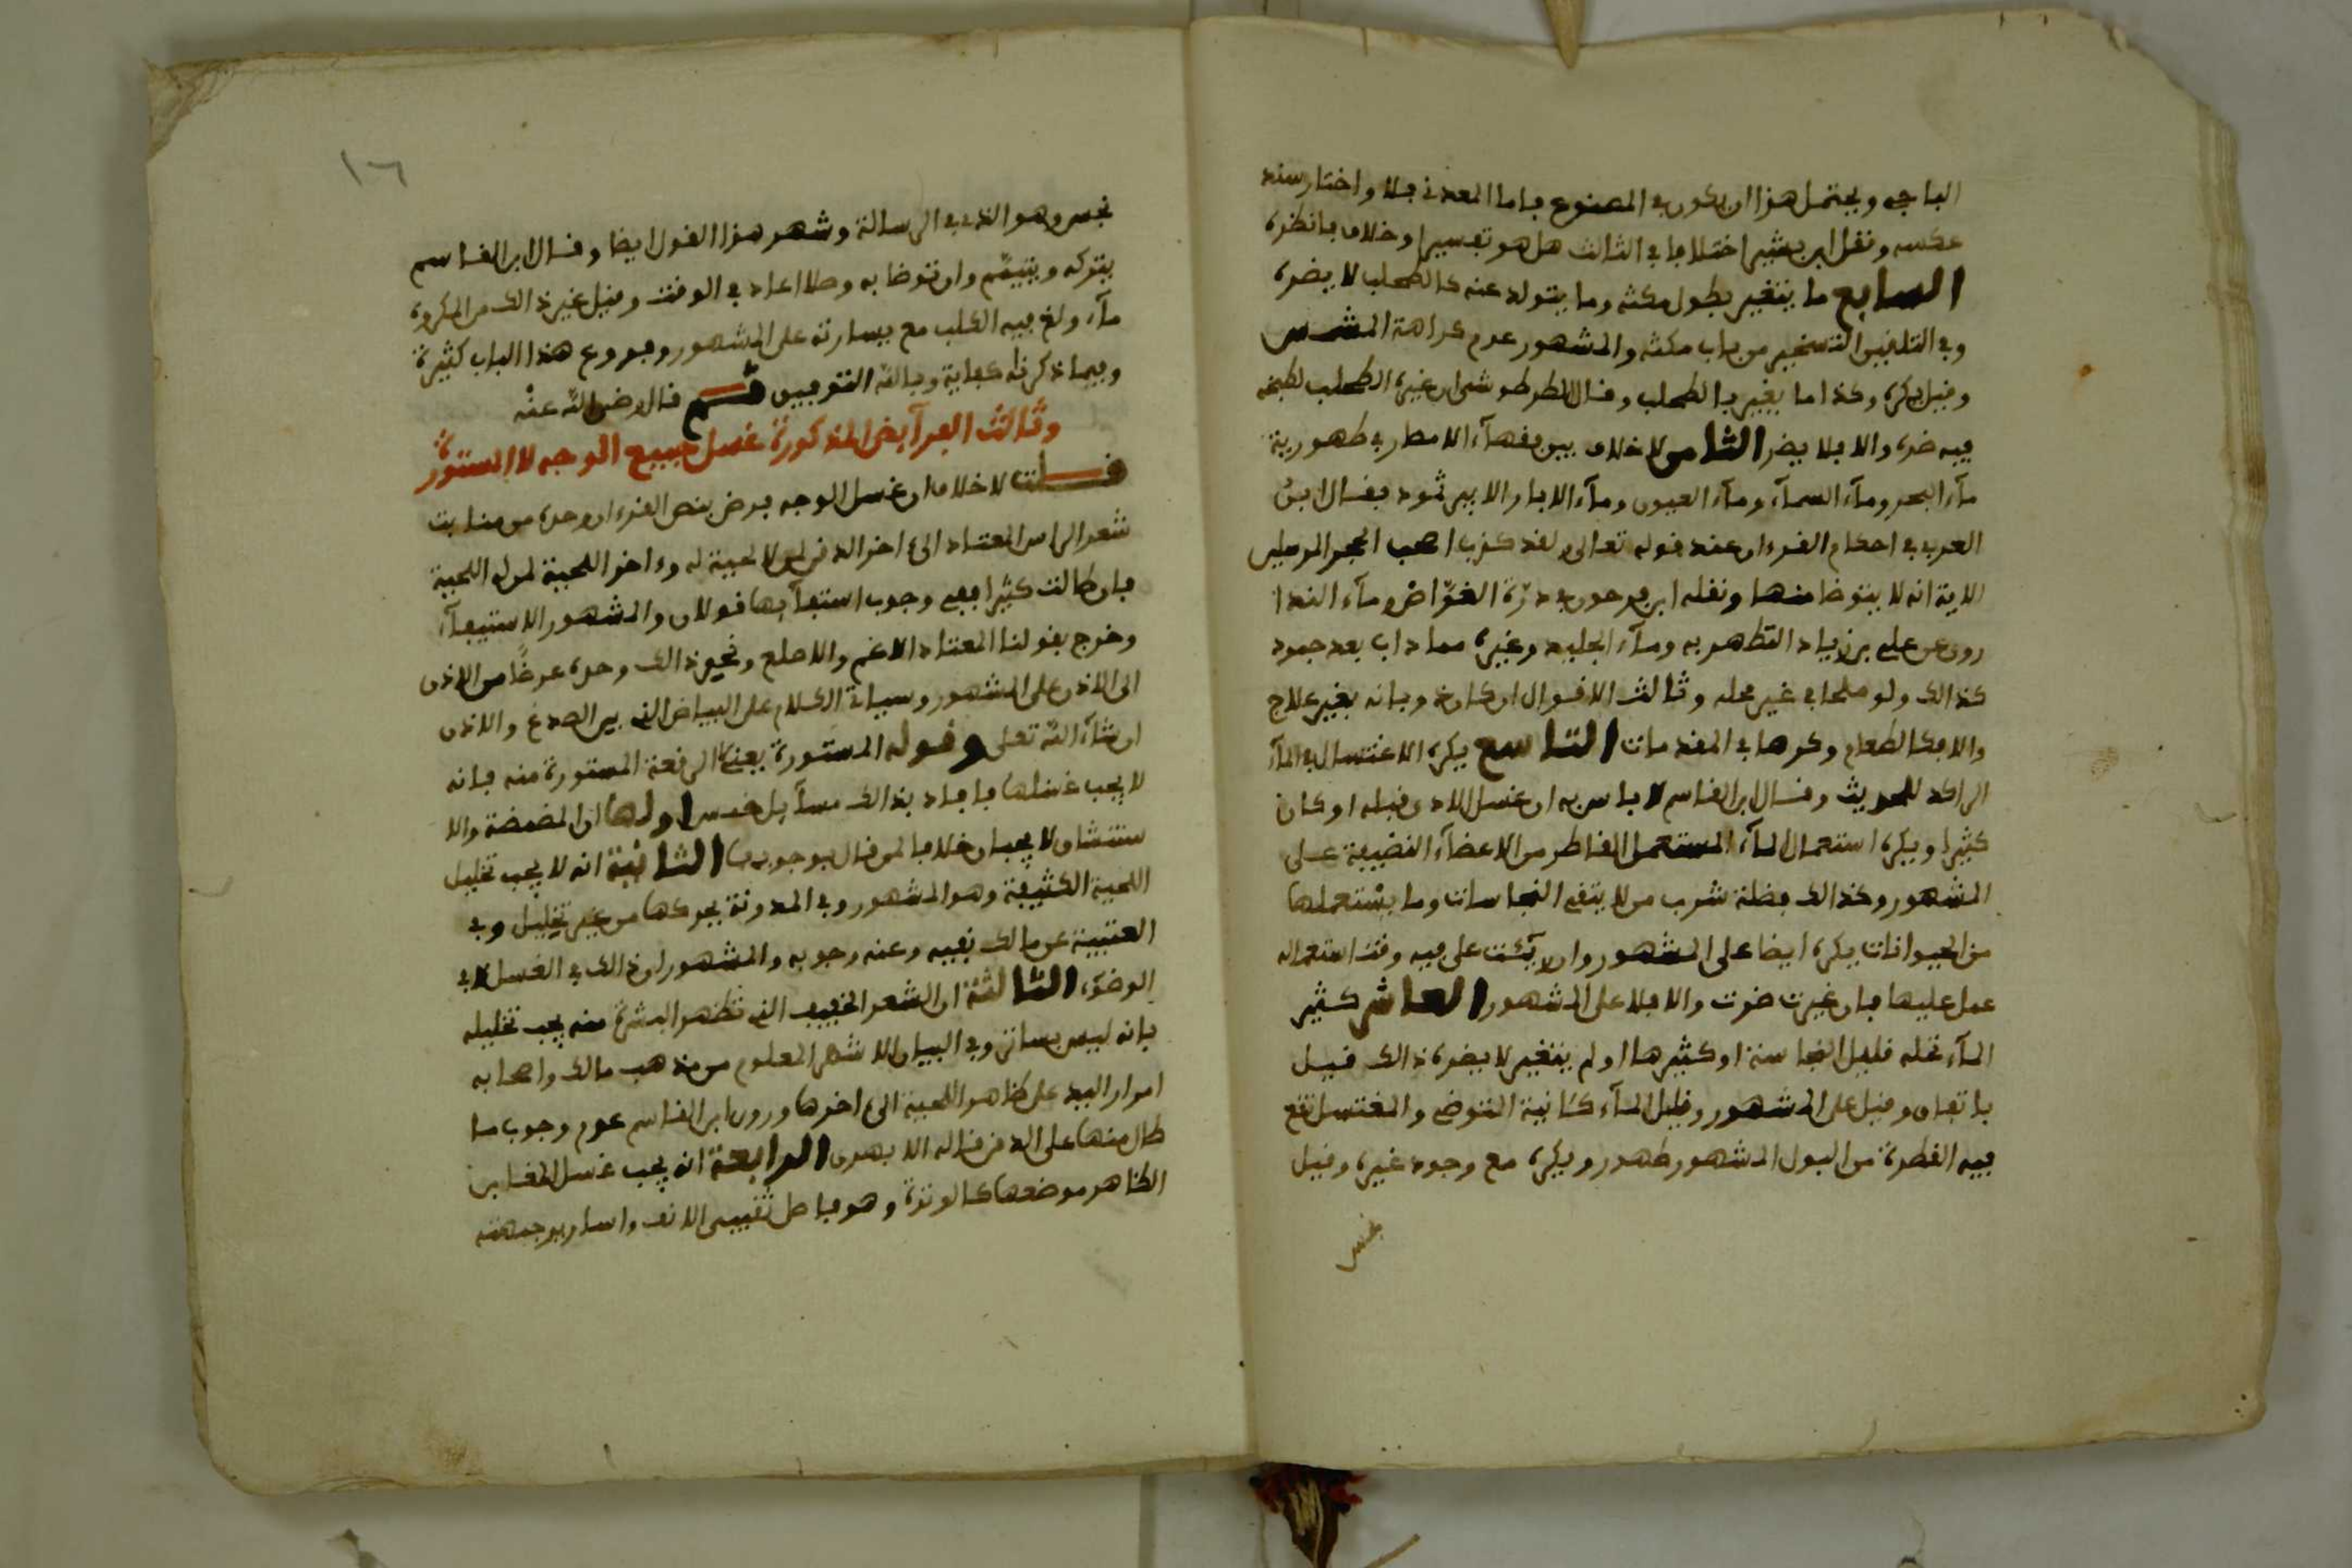 الباجي ويحتمل هذا ان يكون في المصنوع فاما المعدني فلا واختار سند
عكسه ونقل ابن بشير اختلافا في الثالث هل هو تفسير او خلاف فانظره
السابع ما يتغير بطول مكثه وما يتولد عنه كالطحلب لا يضره
وفي التلقين التسخير من باب مكثه والمشهور عدم كراهة المشمس
وقيل يكره وكذا ما يغير بالطحلب وقال الطرطوشي ان غيره الطحلب لطبخه
فيه ضره والا فلا يضر الثامن لا خلاف بين فقهآء الامطار في طهورية
مآء البحر ومآء السمآء ومآء العيون ومآء الابار الا بير ثمود فقال ابن
العربي في احكام القرءان عند قوله تعالى ولقد كذب اصحب الحجر المرسلين
الاية انه لا يتوضا منها ونقله ابن فرحون في درة الغواص ومآء الندا
روي عن علي بن زياد التطهر به ومآء الجليد وغيره مما داب بعد جمود
كذالك ولو ملحا في غير محله وثالث الاقوال ان كان دوبانه بغير علاج
والا فكالطعام وكرها في المقدمات التاسع يكره الاغتسال في المآء
الراكد للحديث وقال ابن القاسم لا باس به ان غسل الاذى قبله او كان
كثيرا ويكره استعمال المآء المستعمل القاطر من الاعضآء النضيفة على
المشهور وكذالك فضلة شرب من لا يتقي النجاسات وما يستعملها
من الحيوانات يكره ايضا على المشهور وان رئت على فيه وقت استعماله
عمل عليها فان غيرت ضرت والا فلا على المشهور العاشر كثير
المآء تحله قليل النجاسة او كثيرها ولم يتغير لا يضره ذالك قيل
باتفاق وقيل على المشهور وقليل المآء كئانية المتوضي والمغتسل تقع
فيه القطرة من البول المشهور طهور ويكره مع وجود غيره وقيل
نجس
١٦
نجس وهو الذي في الرسالة وشهر هذا القول ايضا وقال ابن القاسم
يتركه ويتيمم وان توضا به وصلا اعاد في الوقت وقيل غير ذالك من المكروه
مآء ولغ فيه الكلب مع يسارته على المشهور وفروع هذا الباب كثيرة
وفيما ذكرناه كفاية وبالله التوفيق ثم قال رضي الله عنه
وثالث الفرآيض المذكورة غسل جميع الوجه لا المستورة
قلت لا خلاف ان غسل الوجه فرض بنص القرءان وحده من منابت
شعر الراس المعتاد الى ءاخر الذقن لمن لا لحية له وءاخر اللحية لمن له اللحية
فان طالت كثيرا ففي وجوب استيفآيها قولان والمشهور الاستيفآء
وخرج بقولنا المعتاد الاغم والاصلع ونحو ذالك وحده عرضا من الاذن
الى الاذن على المشهور وسياتي الكلام على البياض الذي بين الصدغ والاذن
ان شآء الله تعلى وقوله المستورة يعني الرقعة المستورة منه فانه
لا يجب غسلها فافاد بذالك مسآيل خمس اولها ان المضمضة والا
ستنشاق لا يجبان خلافا لمن قال بوجوبها الثانية انه لا يجب تخليل
اللحية الكثيفة وهو المشهور وفي المدونة يحركها من غير تخليل وفي
العتبية عن مالك نفيه وعنه وجوبه والمشهور ان ذالك في الغسل لا في
الوضوء الثالثة ان الشعر الخفيف الذي تظهر البشرة منه يجب تخليله
فانه ليس بساتر وفي البيان الاشهر المعلوم من مذهب مالك واصحابه
امرار اليد على ظاهر اللحية الى ءاخرها وروى ابن القاسم عدم وجوب ما
طال منها على الذقن قاله الابهري الرابعة انه يجب غسل المغابن
الظاهر موضعها كالوترة وهو فاصل ثقبيى الانف واسارير جبهته